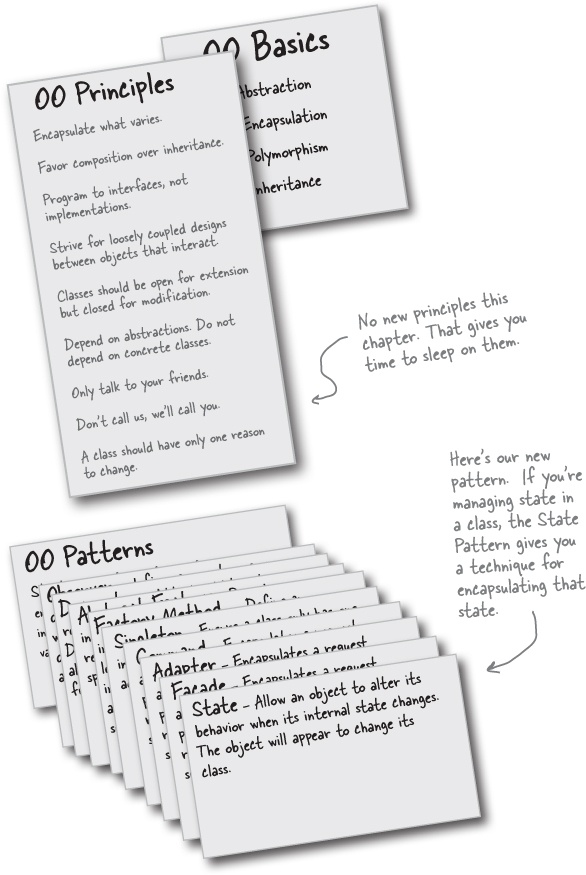 OO Basics
Abstraction
Encapsulation
Polymorphism
Inheritance
OO Principles
Encapsulate what varies.
Favor composition over inheritance.
Program to interfaces, not
implementations.
Strive for loosely coupled designs
between objects that interact.
Classes should be open for extension
but closed for modification.
Depend on abstractions. Do not
depend on concrete classes.
Only talk to your friends.
Don't call us, we'll call you.
A class should have only one reason
to change.
No new principles this
chapter. That gives you
time to sleep on them.
Here's our new
pattern. If you're
managing state in
a class, the State
Pattern gives you
a technique for
encapsulating that
state.
OO Patterns
Factory Method
Singleton
Adapter - Encapsulates a request
Facade - Encapsulates a request
State - Allow an object to alter its
behavior when its internal state changes.
The object will appear to change its
class.